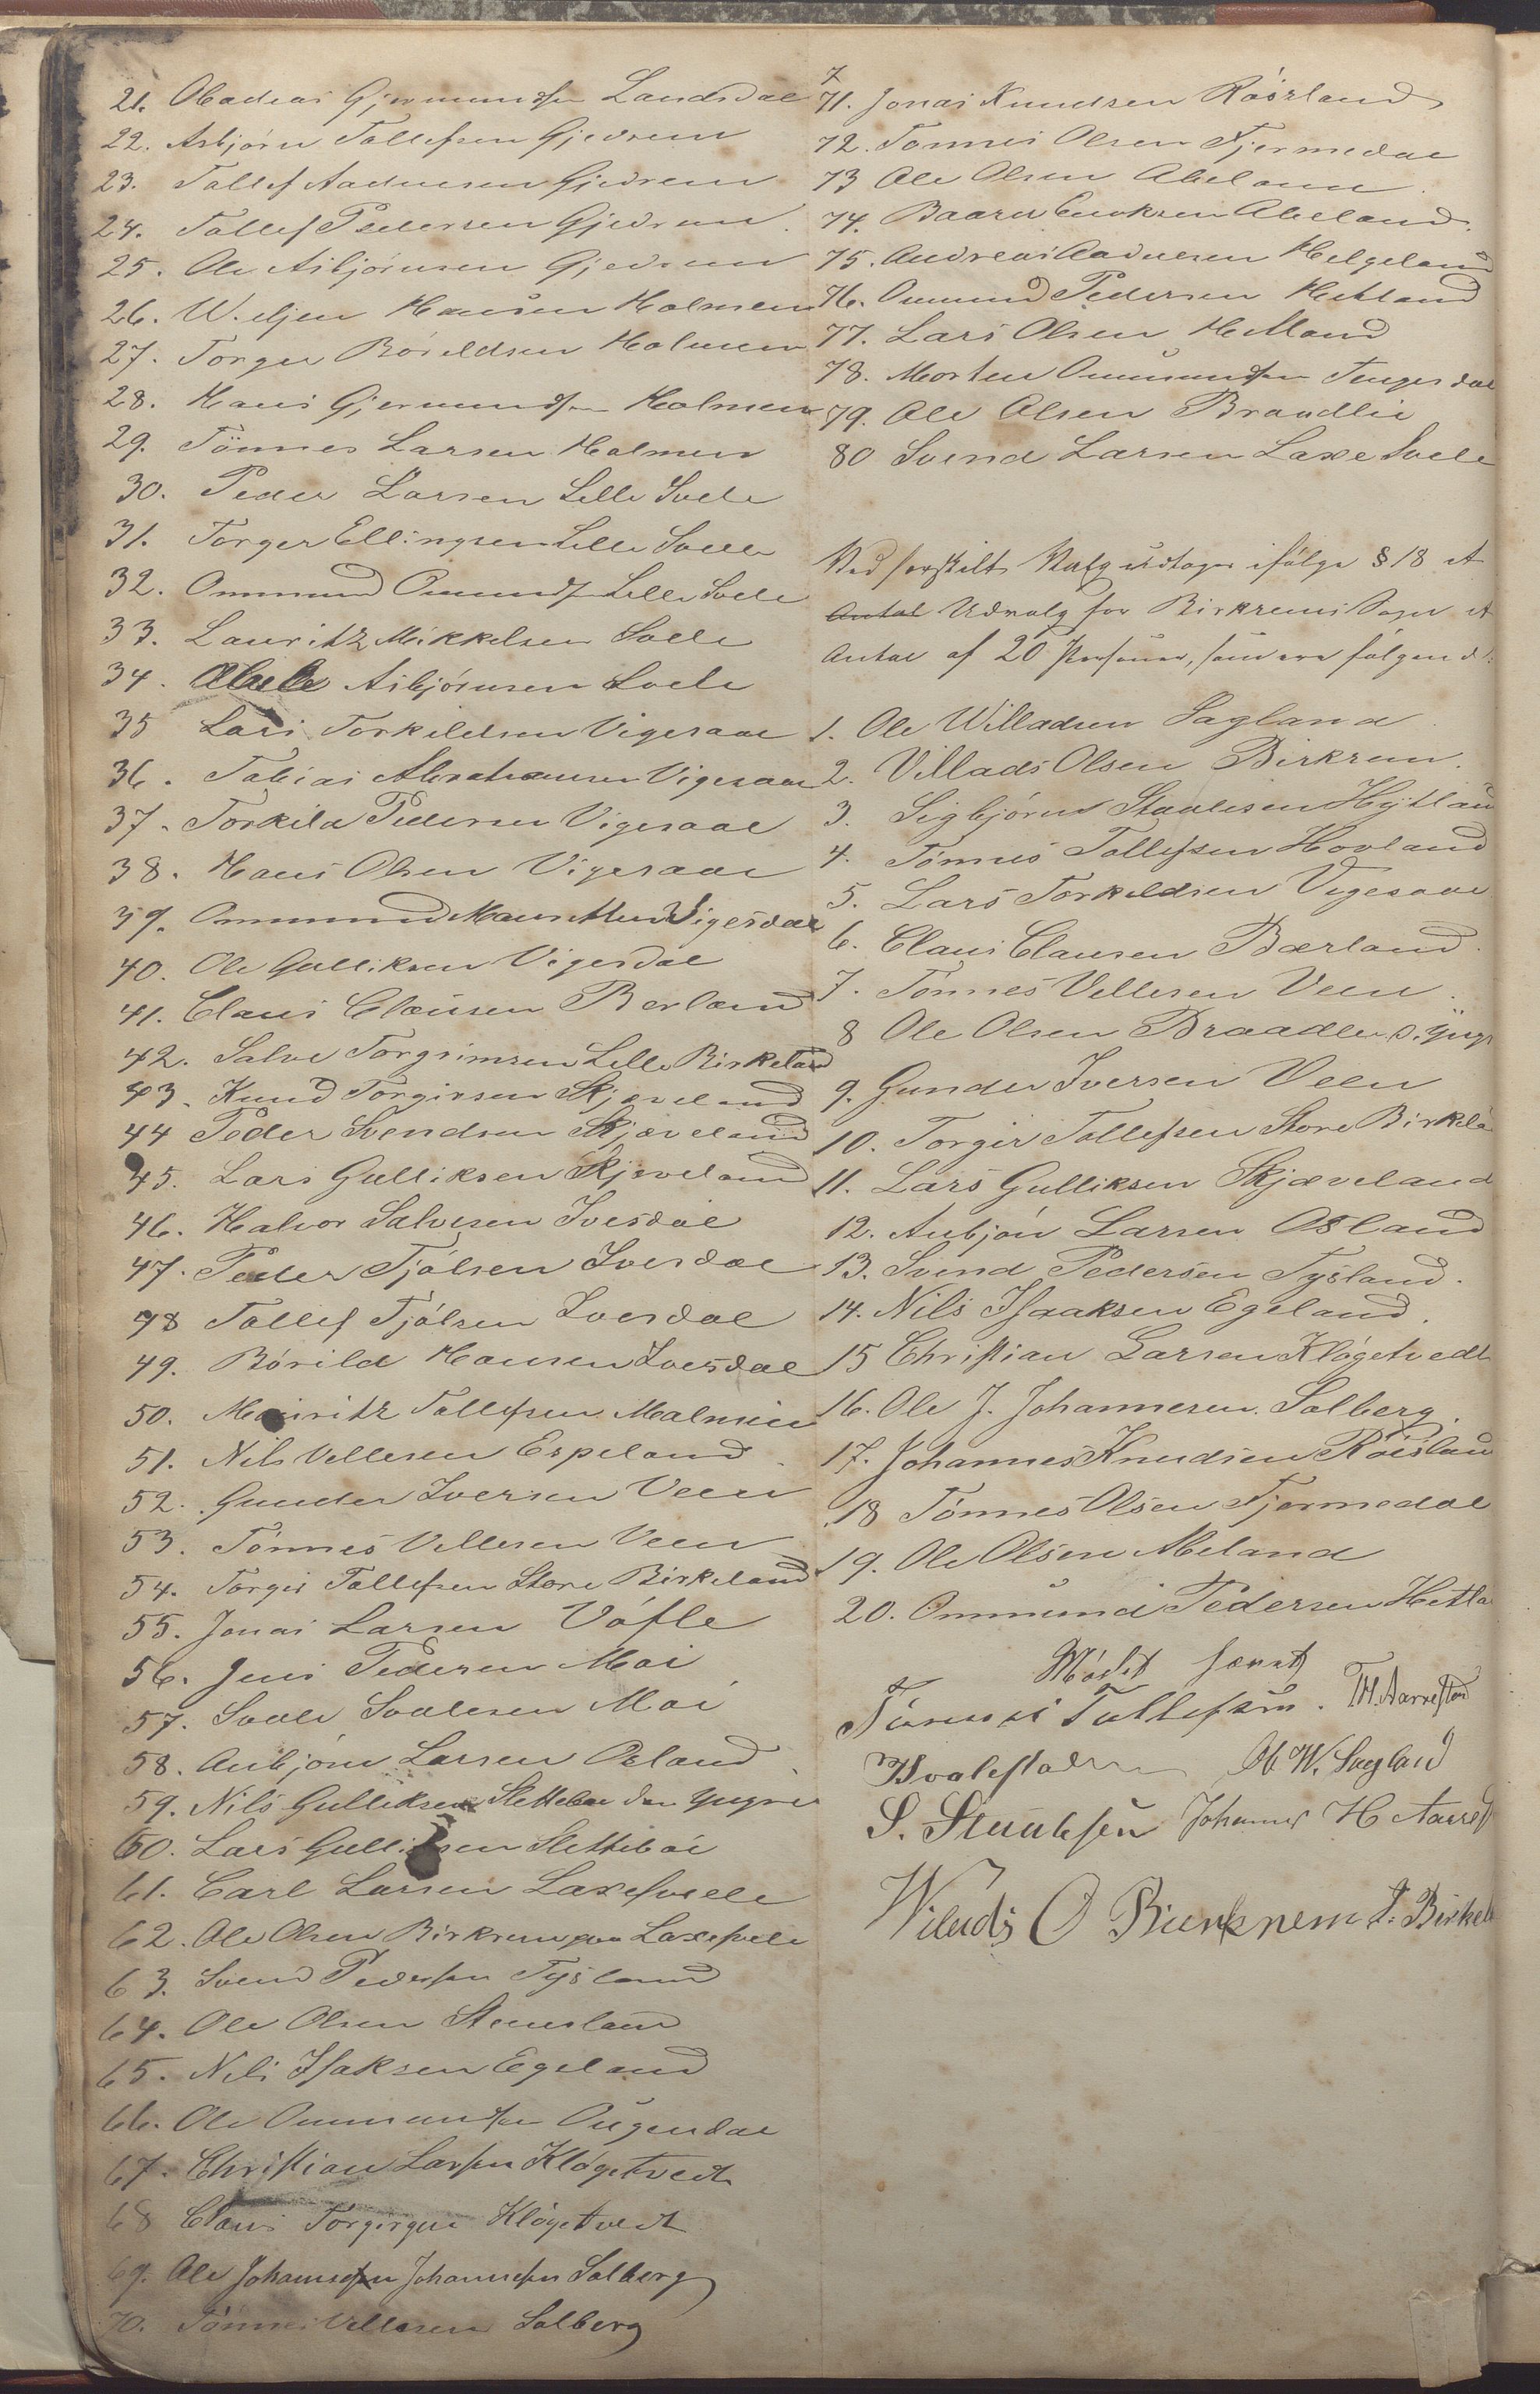 21. Obadias Gjermundsen Landsdal
22. Asbjörn Tollefsen Gjedrem
23. Tollef Aadnesen Gjedrem
24. Tollef Pedersen Gjedrem
25. Ole Asbjörnsen Gjedrem
26. Hansen Holmen
27. Torger Börildsen Holmen
28. Hans Gjermundsen Holmen
29. Tönnes Larsen Holmen
30. Peder Larsen Lille Svele
31. Torger Ellingsen Lille Svele
32. Ommund Ommunds Lille Svele
33. Lauritz Mikkelsen Svele
34. Asbjörnsen Svele
35 Lars Torkildsen Vigesaae
36. Tobias Abrahamsen Vigesaae
37. Torkild Pedersen Vigesaae
38. Hans Olsen Vigesaae
39. Ommund Vigesdal
40. Ole Gulliksen Vigesdal
41. Claus Clausen Berland
42. Salve Torgrimsen Lille Birkeland
43. Knud Torgirsen Skjæveland
44 Peder Svendsen Skjæveland
45. Lars Gulliksen Skjæveland
46. Halvor Salvesen Ivesdal
47. Peder Tjölsen Ivesdal
48 Tollef Tjölsen Ivesdal
49. Börild Hansen Ivesdal
50. Mauritz Tollefsen Malmein
51. Nils Vellesen Espeland
52. Gunder Iversen Veen
53. Tönnes Vellesen Veen
54. Torgir Tollefsen Store Birkeland
55. Jonas Larsen Vöfle
56. Jens Pedersen Moi
57. Svale Svalesen Moi
58. Anbjörn Larsen Osland
59. Nils Gulliksen Slettebø den yngre
60. Lars Gulliksen Slettebøe
61. Carl Larsen Laxesvele
62. Ole Olsen Birkrem paa Laxesvele
63. Svend Pedersen Tysland
64. Ole Olsen Stensland
65. Nils Isaksen Egeland
66. Ole Ommundsen Ougendal
67. Christian Larsen Klögetvedt
68 Claus Klögetvedt
69. Ole Johannesen Johannesen Solberg
70. Tönnes Vellesen Solberg
7
71. Jonas Knudsen Röisland
72. Tönnes Olsen Tjermedal
73 Ole Olsen Abeland
74. Baard Enoksen Abeland
75. Andreas Aadnesen Helgeland
76. Ommund Pedersen Hetland
77. Lars Olsen Hetland
78. Morten Ommundsen Tengesdal
79. Ole Olsen Braadlie
80 Svend Larsen Laxe Svele
Ved særskilt Valg udtages ifölge § 18 et
Antal Udvalg for Birkrems Sogn et
Antal af 20 Personer, som ere fölgende:
1. Ole Willadsen Sagland
2. Villads Olsen Birkrem.
3. Sigbjörn Staalesen Hytlan
4. Tönnes Tollefsen Hovland
5. Lars Torkildsen Vigesaae
6. Claus Clausen Bærland
7. Tönnes Vellesen Veen
8 Ole Olsen Braadlie d. yng
9. Gunder Iversen Veen
10. Torgir Tollefsen Store Birkela
11. Lars Gulliksen Skjæveland
12. Anbjörn Larsen Osland
13. Svend Pedersen Tysland.
14. Nils Isaaksen Egeland.
15 Christian Larsen Klögetvedt
16. Ole J. Johannesen Solberg.
17. Johannes Knudsen Röislan
18 Tönnes Olsen Tjermedal
19. Ole Olsen Abeland
20. Ommund Pedersen Hetla
Mödet hævet
Tönnes Tollefsen. TH. Aarrestad
Hvalestad O. W. Sagland
S. Staalesen Johannes H Aarrest
Vilads O Birkrem T. Birkel